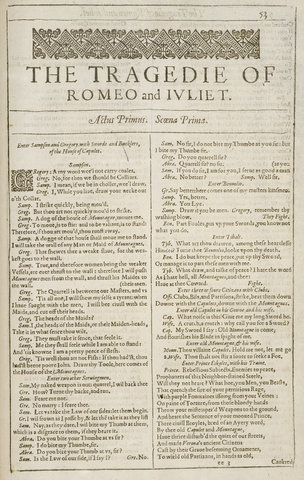 53
THE TRAGEDIE OF
ROMEO and IVLIET.
Actus Primus. Scœna Prima.
Enter Sampson and Gregory, with Swords and Bucklers,
of the House of Capulet.
Sampson.
Gregory: A my word wee'l not carry coales.
Greg. No, for then we should be Colliars.
Samp. I mean, if we be in choller, wee'l draw.
Greg. I, While you liue, draw your necke out
o'th Collar.
Samp. I strike quickly, being mou'd.
Greg. But thou art not quickly mou'd to strike.
Samp. A dog of the house of Mountague, moues me.
Greg. To moue, is to stir: and to be valiant, is to stand:
Therefore, if thou art mou'd, thou runst away.
Samp. A dogge of that house shall moue me to stand.
I will take the wall of any Man or Maid of Mountagues.
Greg. That shewes thee a weake slaue, for the wea-
kest goes to the wall.
Samp. True, and therefore women being the weaker
Vessels, are euer thrust to the wall: therefore I will push
Mountagues men from the wall, and thrust his Maides to
the wall.
Greg. The Quarrell is betweene our Masters, and vs
Samp. 'Tis all one, I will shew my selfe a tyrant: when
I haue fought with the men, I will bee ciuill with the
Maids, and cut off their heads.
Greg. The heads of the Maids?
Sam. I, the heads of the Maids, or their Maiden-heads,
Take it in what sence thou wilt.
Greg. They must take it sence, that feele it.
Samp. Me they shall feele while I am able to stand:
And 'tis knowne I am a pretty peece of flesh.
Greg. 'Tis well thou art not Fish: If thou had'st, thou
had'st beene poore Iohn. Draw thy Toole, here comes of
the House of the Mountagues.
Enter two other Seruingmen.
Sam. My naked weapon is out: quarrel, I wil back thee
Gre. How? Turne thy backe, and run.
Sam. Feare me not.
Gre. No marry: I feare thee.
Sam. Let vs take the Law of our sides: let them begin.
Gr. I wil frown as I passe by, & let them take it as they list
Sam. Nay, as they dare. I wil bite my Thumb at them,
which is a disgrace to them, if they beare it.
Abra. Do you bite your Thumbe at vs sir?
Samp. I do bite my Thumbe, sir.
Abra. Do you bite your Thumb at vs, sir?
Sam. Is the Law of our side, if I say I? Gre. No.
Sam. No sir, I do not bite my Thumbe at you sir: but
I bite my Thumbe sir.
Greg. Do you quarrell sir?
Abra. Quarrell sir? no sir.
Sam. If you do sir, I am for you, I serue as good a man
as you. Abra. No better? Samp. Well sir.
Enter Benuolio.
Gr. Say better: here comes one of my masters kinsmen.
Samp. Yes, better.
Abra. You Lye.
Samp. Draw if you be men. Gregory, remember thy
washing blow. They Fight.
Ben. Part Fooles, put vp your Swords, you know not
what you do.
Enter Tibalt.
Tyb. What art thou drawne, among these heartlesse
Hindes? Turne thee Benuolio, looke vpon thy death.
Ben. I do but keepe the peace, put vp thy Sword,
Or manage it to part these men with me.
Tyb. What draw, and talke of peace? I hate the word
As I hate hell, all Mountagues, and thee:
Haue at thee Coward. Fight.
Enter three or foure Citizens with Clubs.
Offi. Clubs, Bils, and Partisons, strike, beat them down
Downe with the Capulets, downe with the Mountagues.
Enter old Capulet in his Gowne, and his wife.
Cap. What noise is this? Giue me my long Sword ho.
Wife. A crutch, a crutch: why call you for a Sword?
Cap. My Sword I say: Old Mountague is come,
And flourishes his Blade in spight of me.
Enter old Mountague, & his wife.
Moun. Thou villaine Capulet. Hold me not, let me go
2. Wife. Thou shalt not stir a foote to seeke a Foe.
Enter Prince Eskales, with his Traine.
Prince. Rebellious Subiects, Enemies to peace,
Prophaners of this Neighbor-stained Steele,
Will they not heare? What hoe, you Men, you Beasts,
That quench the fire of your pernitious Rage,
With purple Fountaines issuing from your Veines:
On paine of Torture, from those bloody hands
Throw your mistemper'd Weapons to the ground,
And heare the Sentence of your mooued Prince.
Three ciuill Broyles, bred of an Ayery word,
By thee old Capulet and Mountague,
Haue thrice disturb'd the quiet of our streets,
And made Verona's ancient Citizens
Cast by their Graue beseeming Ornaments,
To wield old Partizans, in hands as old,
ee 3
Cankred